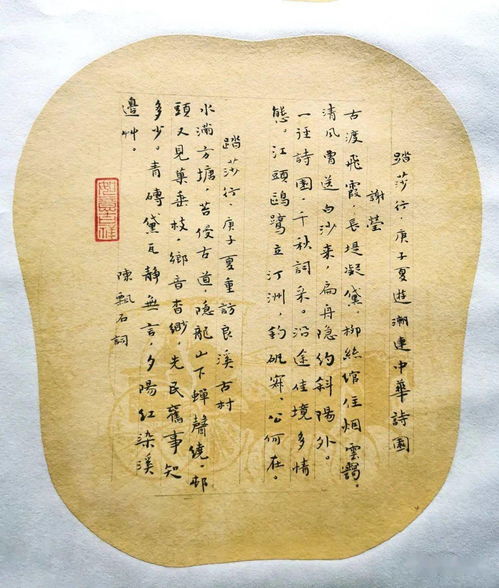 踏莎行·庚子夏遊潮連中華詩園
謝瑩
古渡飛霞，長堤凝黛，柳絲綰住烟雲靄，
清風曾送白沙來，扁舟隱約斜陽外。
一徑詩園，千秋詞采。沿途佳境多情
態。江頭鷗鷺立汀洲，釣磯寂，公何在。
踏莎行·庚子夏重訪良溪古村
水滿方塘，苔侵古道，隱龍山下蟬聲繞，邨
頭又見藁垂枝，鄉音杳緲，先民舊事知
多少。青磚黛瓦靜無言，夕陽紅染溪
邊艸。
陳飄石詞